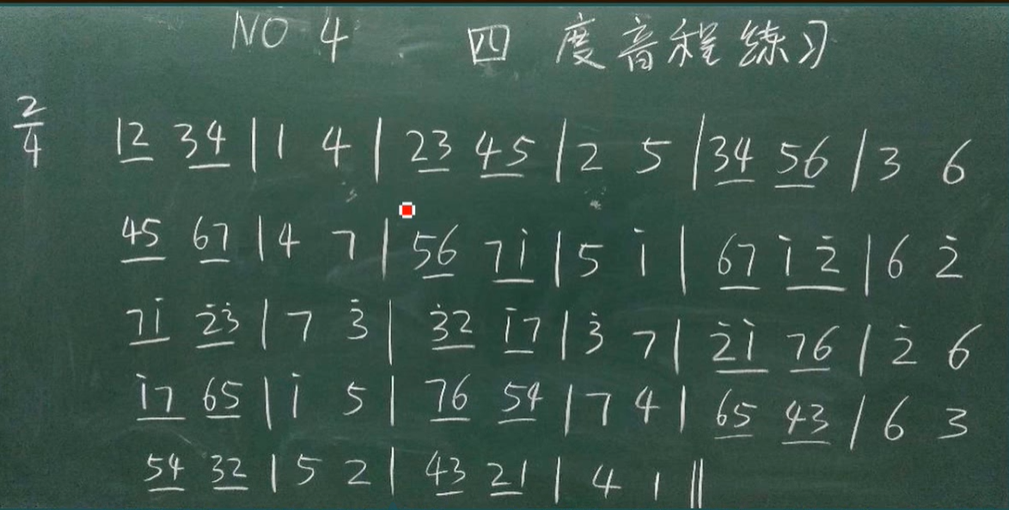 NO 4 四度音程练习
2/4 1̲2̲ 3̲4̲ | 1 4 | 2̲3̲ 4̲5̲ | 2 5 | 3̲4̲ 5̲6̲ | 3 6
4̲5̲ 6̲7̲ | 4 7 | 5̲6̲ 7̲1̲̇ | 5 1̇ | 6̲7̲ 1̲̇2̲̇ | 6 2̇
7̲1̲̇ 2̲̇3̲̇ | 7 3̇ | 3̲̇2̲ 1̲̇7̲ | 3̇ 7 | 2̲̇1̲̇ 7̲6̲ | 2̇ 6
1̲̇7̲ 6̲5̲ | 1̇ 5 | 7̲6̲ 5̲4̲ | 7 4 | 6̲5̲ 4̲3̲ | 6 3
5̲4̲ 3̲2̲ | 5 2 | 4̲3̲ 2̲1̲ | 4 1 ‖